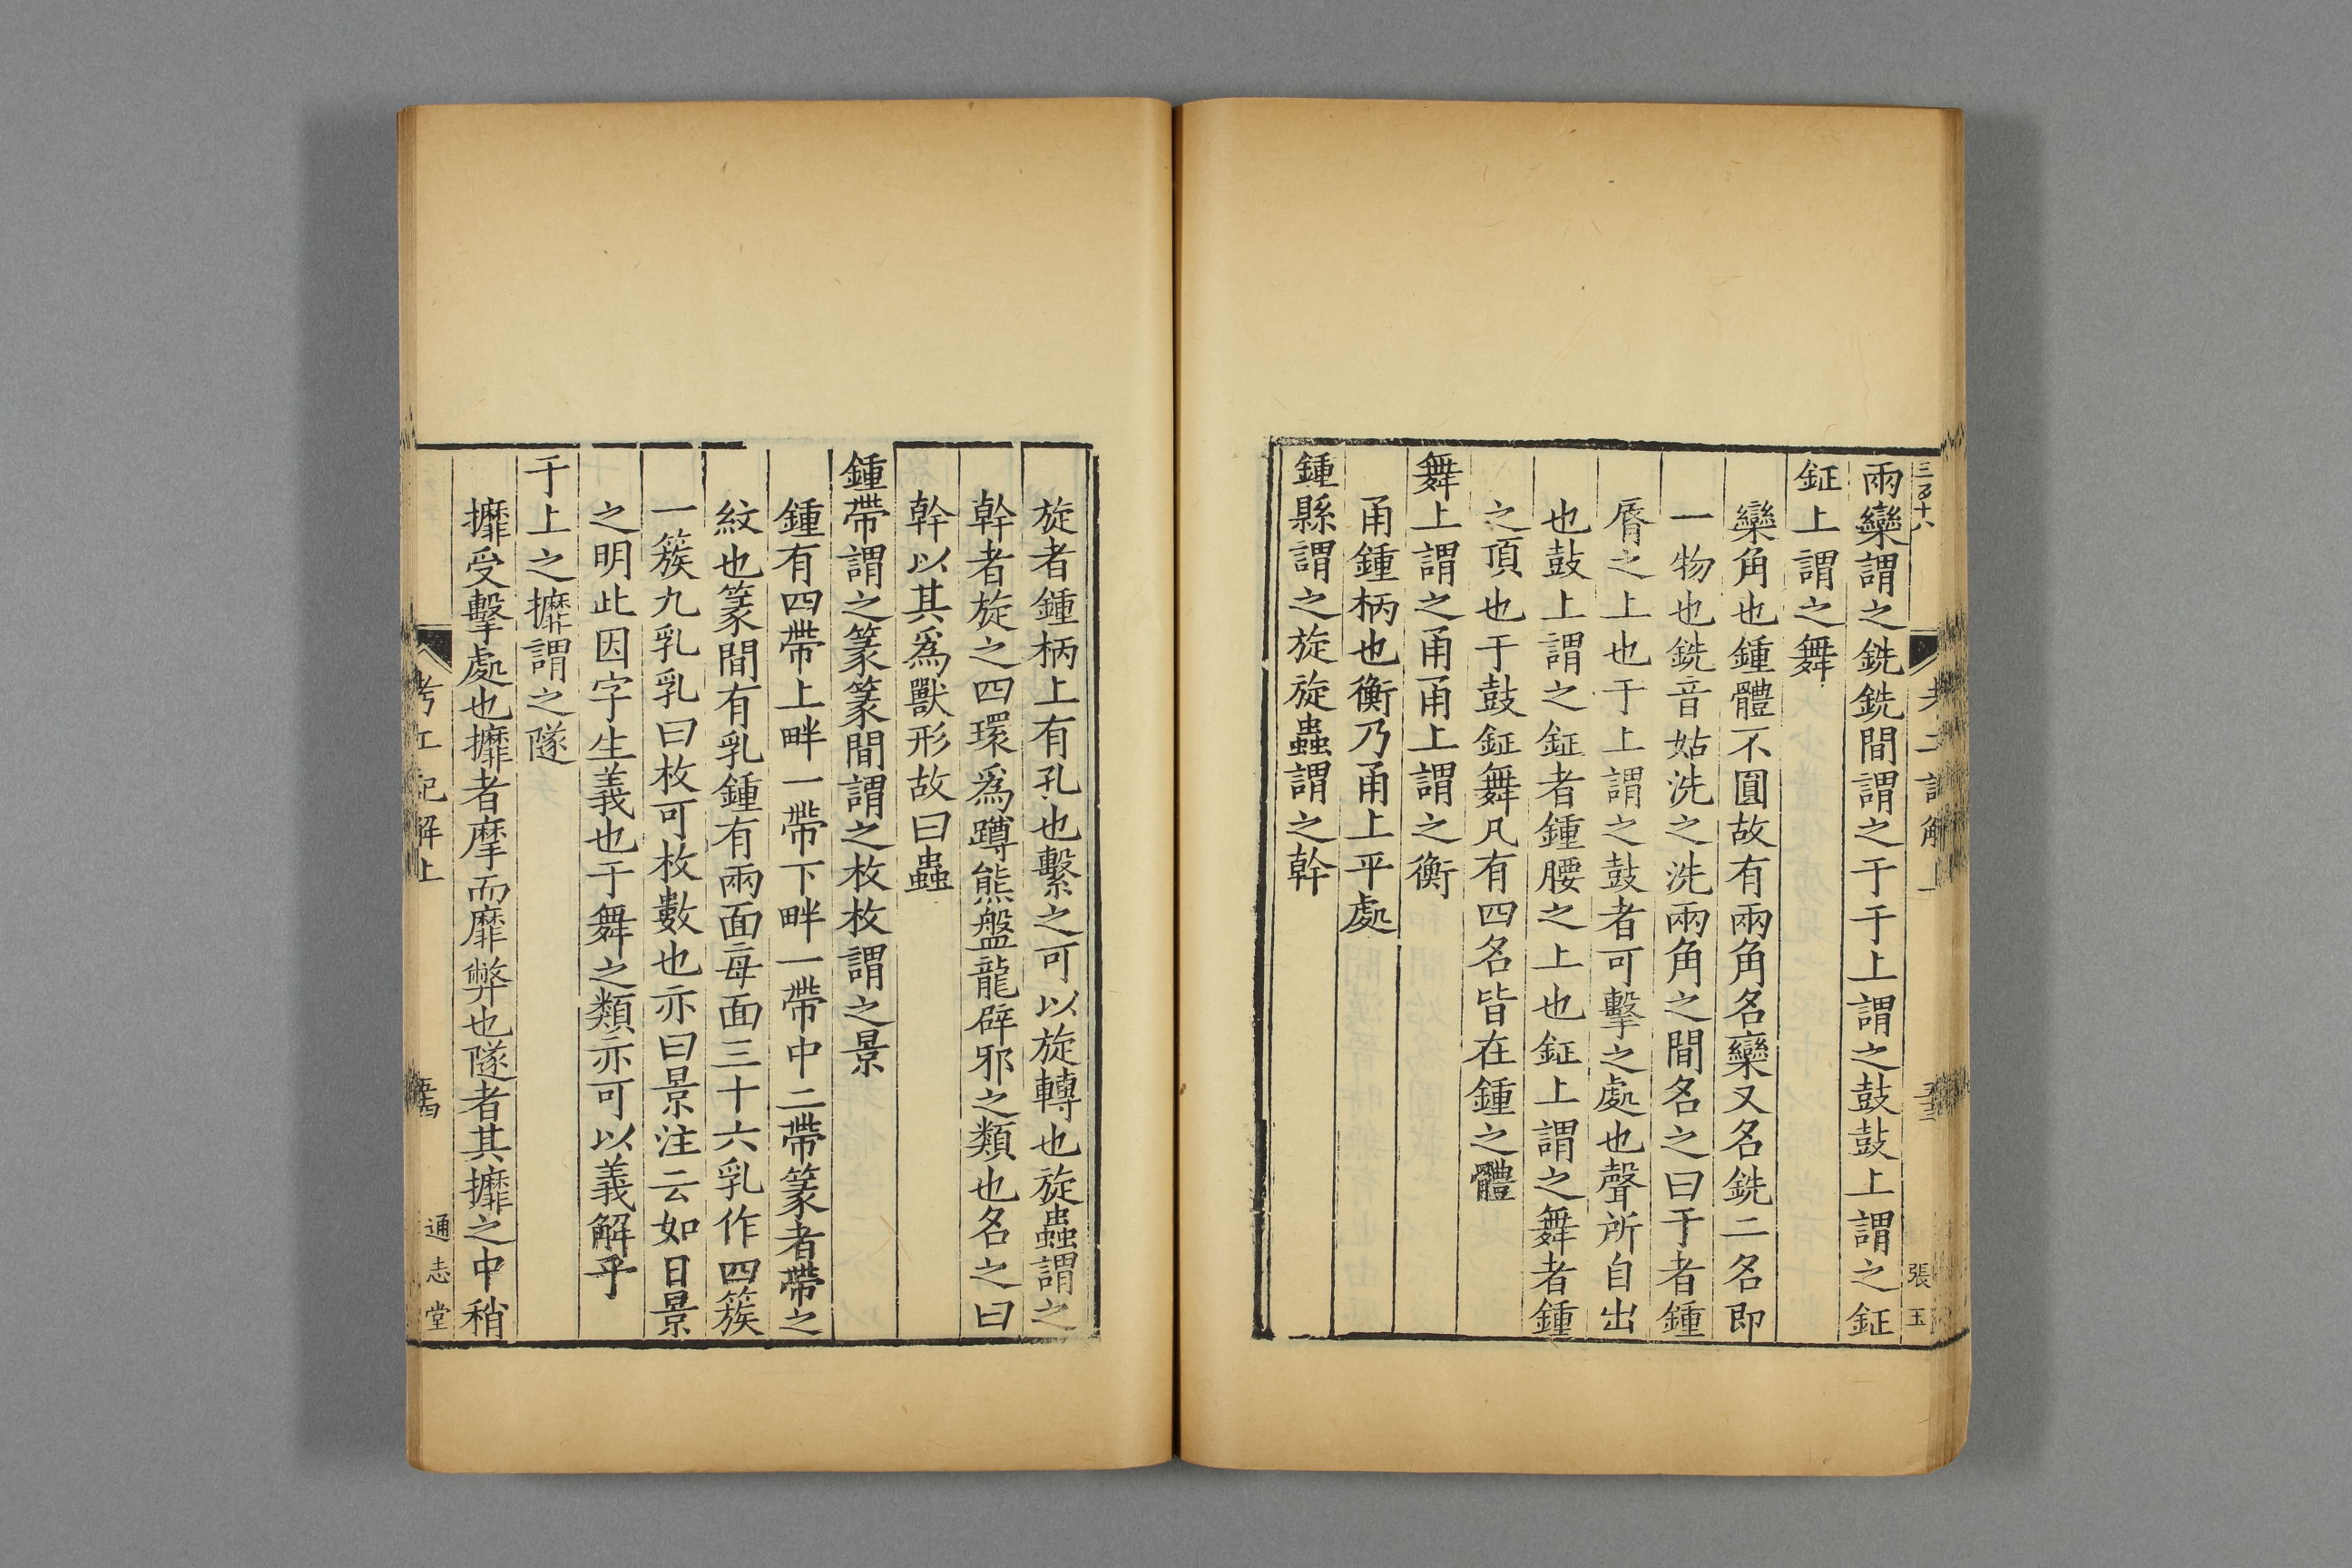 三百十八
張玉
兩欒謂之銑銑間謂之于于上謂之鼓鼓上謂之鉦
鉦上謂之舞
欒角也鍾體不圓故有兩角名欒又名銑二名即
一物也銑音姑洗之洗兩角之間名之曰于者鍾
脣之上也于上謂之鼓者可擊之處也聲所自出
也鼓上謂之鉦者鍾腰之上也鉦上謂之舞者鍾
之頂也于鼓鉦舞凡有四名皆在鍾之體
舞上謂之甬甬上謂之衡
甬鍾柄也衡乃甬上平處
鍾縣謂之旋旋蟲謂之幹
旋者鍾柄上有孔也繫之可以旋轉也旋蟲謂之
幹者旋之四環爲蹲熊盤龍辟邪之類也名之曰
幹以其爲獸形故曰蟲
鍾帶謂之篆篆間謂之枚枚謂之景
鍾有四帶上畔一帶下畔一帶中二帶篆者帶之
紋也篆間有乳鍾有兩面每面三十六乳作四簇
一簇九乳乳曰枚可枚數也亦曰景注云如日景
之明此因字生義也于舞之類亦可以義解乎
于上之攠謂之隧
攠受擊處也攠者摩而靡弊也隧者其攠之中稍
考工記解上
通志堂